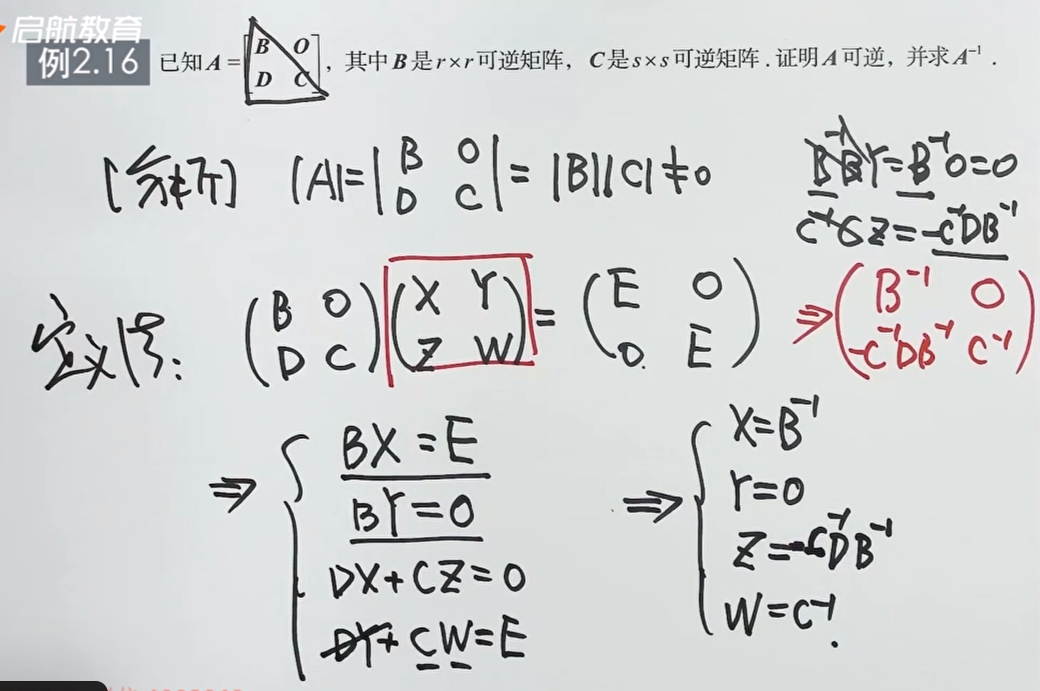 启航教育
例2.16 已知A=[B O D C],其中B是r×r可逆矩阵, C是s×s可逆矩阵.证明A可逆,并求A⁻¹.
[分析] |A|=|B O D C|=|B||C|≠0
B⁻¹BY=B⁻¹O=0
C⁻¹CZ=-C⁻¹DB⁻¹
定义得: (B O D C)(X Y Z W)=(E O O E) ⇒ (B⁻¹ O -C⁻¹DB⁻¹ C⁻¹)
⇒ { BX=E
BY=0
DX+CZ=0
DY+CW=E
⇒ { X=B⁻¹
Y=0
Z=-C⁻¹DB⁻¹
W=C⁻¹.